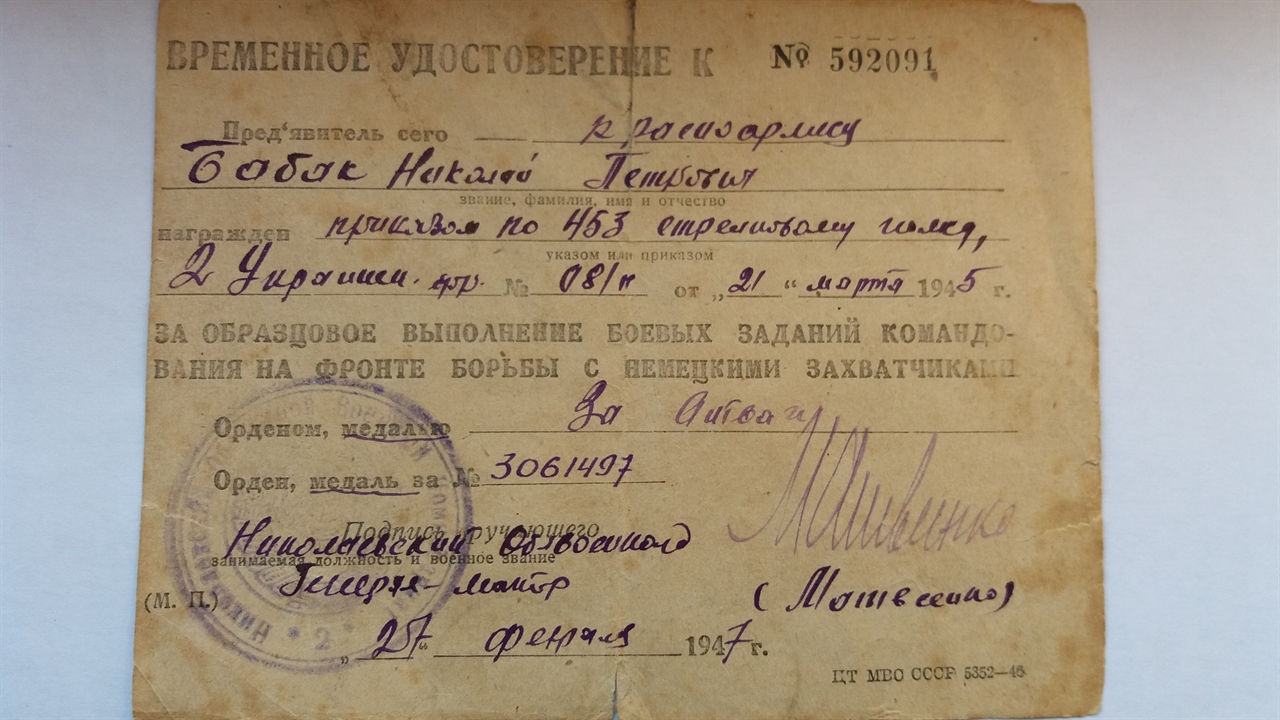 ВРЕМЕННОЕ УДОСТОВЕРЕНИЕ К № 592091
Пред'явитель сего красноармеец
Бабак Николай Петрович
звание, фамилия, имя и отчество
награжден приказом по 453 стрелковому полку,
указом или приказом
2 Украинск. фр. № 081/н от „21" марта 1945 г.
ЗА ОБРАЗЦОВОЕ ВЫПОЛНЕНИЕ БОЕВЫХ ЗАДАНИЙ КОМАНДО-
ВАНИЯ НА ФРОНТЕ БОРЬБЫ С НЕМЕЦКИМИ ЗАХВАТЧИКАМИ
Орденом, медалью За отвагу
Орден, медаль за № 3061497
Подпись вручающего
Николаевский Облвоенком
занимаемая должность и военное звание
Генерал-майор
(М. П.) (Матвеенко)
„27" февраля 1947 г.
ЦТ МВО СССР 5352—46